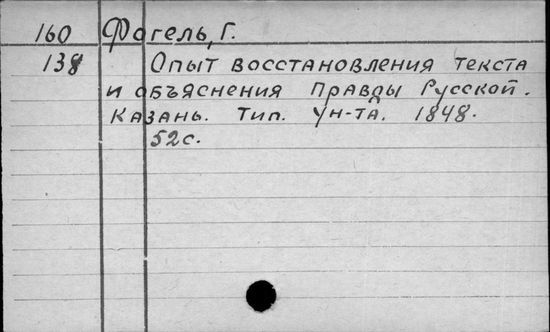 160 Фогель, Г.
138 Опыт восстановления текста
и объяснения Правды Русской.
Казань. Тип. Ун-та. 1848.
52с.